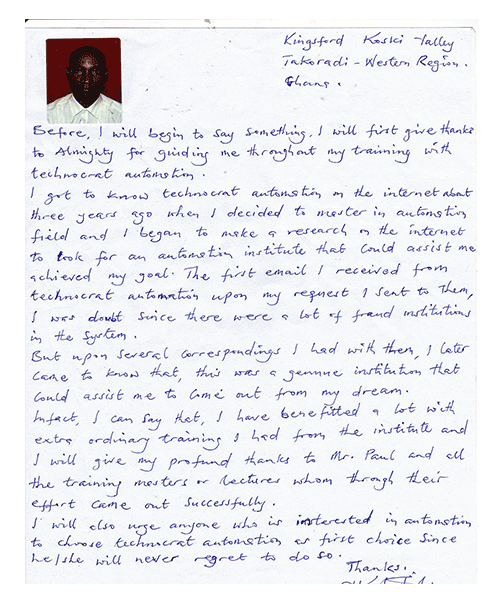 Kingsford Koski Talley
Takoradi - Western Region.
Ghana.
Before, I will begin to say something, I will first give thanks
to Almighty for guiding me throughout my training with
technocrat automation.
I got to know technocrat automation on the internet about
three years ago when I decided to master in automation
field and I began to make a research on the internet
to look for an automation institute that could assist me
achieved my goal. The first email I received from
technocrat automation upon my request I sent to them,
I was doubt since there were a lot of fraud institutions
in the system.
But upon several correspondings I had with them, I later
came to know that, this was a genuine institution that
could assist me to come out from my dream.
Infact, I can say that, I have benefitted a lot with
extra ordinary training I had from the institute and
I will give my profund thanks to Mr. Paul and all
the training masters or lectures whom through their
effort came out successfully.
I will also urge anyone who is insterested in automation
to choose technocrat automation as first choice since
he/she will never regret to do so.
Thanks.